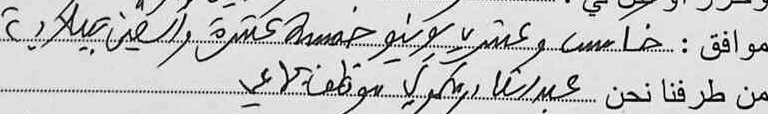 موافق : خامس و عشرين يونيو خمسة عشرة وألفين ميلادية
من طرفنا نحن عبد القادر